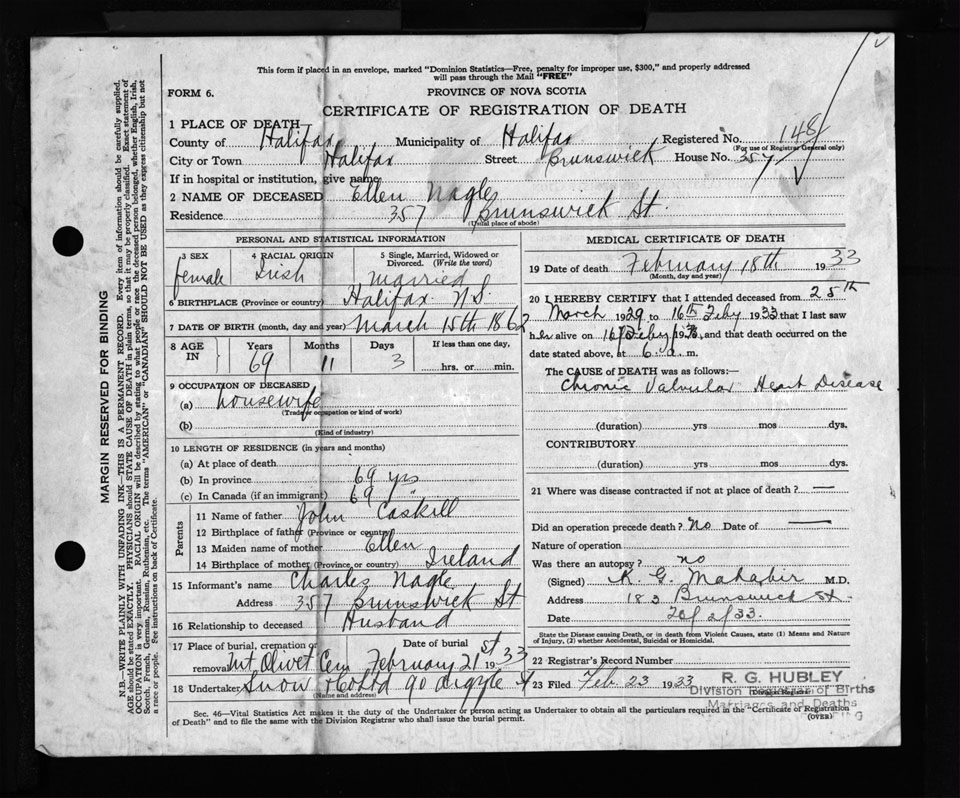 This form if placed in an envelope, marked "Dominion Statistics—Free, penalty for improper use, $300," and properly addressed
will pass through the Mail "FREE"
FORM 6.
PROVINCE OF NOVA SCOTIA
CERTIFICATE OF REGISTRATION OF DEATH
1 PLACE OF DEATH
County of Halifax Municipality of Halifax Registered No. 148
(For use of Registrar General only)
City or Town Halifax Street Brunswick House No. 357
If in hospital or institution, give name
2 NAME OF DECEASED Ellen Nagle
Residence 357 Brunswick St.
(Usual place of abode)
PERSONAL AND STATISTICAL INFORMATION
3 SEX 4 RACIAL ORIGIN 5 Single, Married, Widowed or Divorced. (Write the word)
female Irish Married
6 BIRTHPLACE (Province or country) Halifax N.S.
7 DATE OF BIRTH (month, day and year) March 15th 1862
8 AGE IN Years Months Days If less than one day,
69 11 3 ......hrs. or ......min.
9 OCCUPATION OF DECEASED
(a) housewife
(Trade or occupation or kind of work)
(b)
(Kind of industry)
10 LENGTH OF RESIDENCE (in years and months)
(a) At place of death
(b) In province 69 yrs
(c) In Canada (if an immigrant) 69
Parents
11 Name of father John Caskill
12 Birthplace of father (Province or country)
13 Maiden name of mother Ellen
14 Birthplace of mother (Province or country) Ireland
15 Informant's name Charles Nagle
Address 357 Brunswick St
16 Relationship to deceased Husband
17 Place of burial, cremation or removal Mt. Olivet Cem Date of burial February 21st 1933
18 Undertaker Snow & Co Ltd 90 Argyle St
(Name and address)
MEDICAL CERTIFICATE OF DEATH
19 Date of death February 18th 1933
(Month, day and year)
20 I HEREBY CERTIFY that I attended deceased from 25th
March 1929 to 16th Feby 1933 that I last saw
her alive on 16 Feby 193 , and that death occurred on
date stated above, at 6 a.m.
The CAUSE of DEATH was as follows:
Chronic Valvular Heart Disease
(duration) yrs mos dys.
CONTRIBUTORY
(duration) yrs mos dys.
21 Where was disease contracted if not at place of death? —
Did an operation precede death? No Date of —
Nature of operation
Was there an autopsy? no
(Signed) K. G. Mahabir M.D.
Address 183 Brunswick St.
Date 20/2/33.
State the Disease causing Death, or in death from Violent Causes, state (1) Means and Nature
of Injury, (2) whether Accidental, Suicidal or Homicidal.
22 Registrar's Record Number
23 Filed Feb. 23 1933
R. G. HUBLEY
Division Registrar of Births
Marriages and Deaths
Sec. 46—Vital Statistics Act makes it the duty of the Undertaker or person acting as Undertaker to obtain all the particulars required in the "Certificate of Registration
of Death" and to file the same with the Division Registrar who shall issue the burial permit.
(OVER)
MARGIN RESERVED FOR BINDING
N.B.—WRITE PLAINLY WITH UNFADING INK—THIS IS A PERMANENT RECORD. Every item of information should be carefully supplied.
AGE should be stated EXACTLY. PHYSICIANS should STATE CAUSE OF DEATH in plain terms, so that it may be properly classified. Exact statement of
OCCUPATION is very important. RACIAL ORIGIN will be described by stating to what people or race the deceased person belonged, whether English, Irish,
Scotch, French, German, Russian, Ruthenian, etc. The terms "AMERICAN" or "CANADIAN" SHOULD NOT BE USED as they express citizenship but not
a race or people. See instructions on back of Certificate.